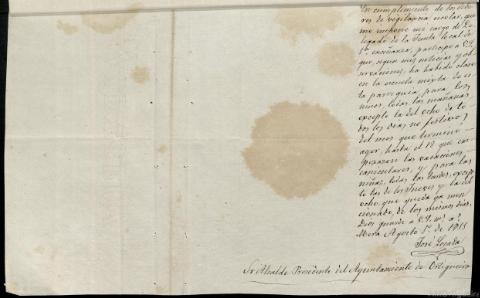 En cumplimiento de los debe-
res de vigilancia escolar, que
me impone mi cargo de De-
legado de la Junta local de
1ª enseñanza, participo a V.S.
que, segun mis noticias y ob-
servaciones, ha habido clase
en la escuela mixta de es-
ta parroquia, para los
niños, todas las mañanas,
excepto la del ocho de to-
dos los dias no festivos
del mes que terminó
ayer, hasta el 18 que em-
pezaron las vacaciones
caniculares, y para las
niñas, todas las tardes, excep-
to las de los Jueves y la del
ocho, que queda ya men-
cionado, de los mismos dias.
Dios guarde a V.S. m.s a.s
Mera Agosto 1º de 1911
José Lozada
Sr Alcalde Presidente del Ayuntamiento de Ortigueira